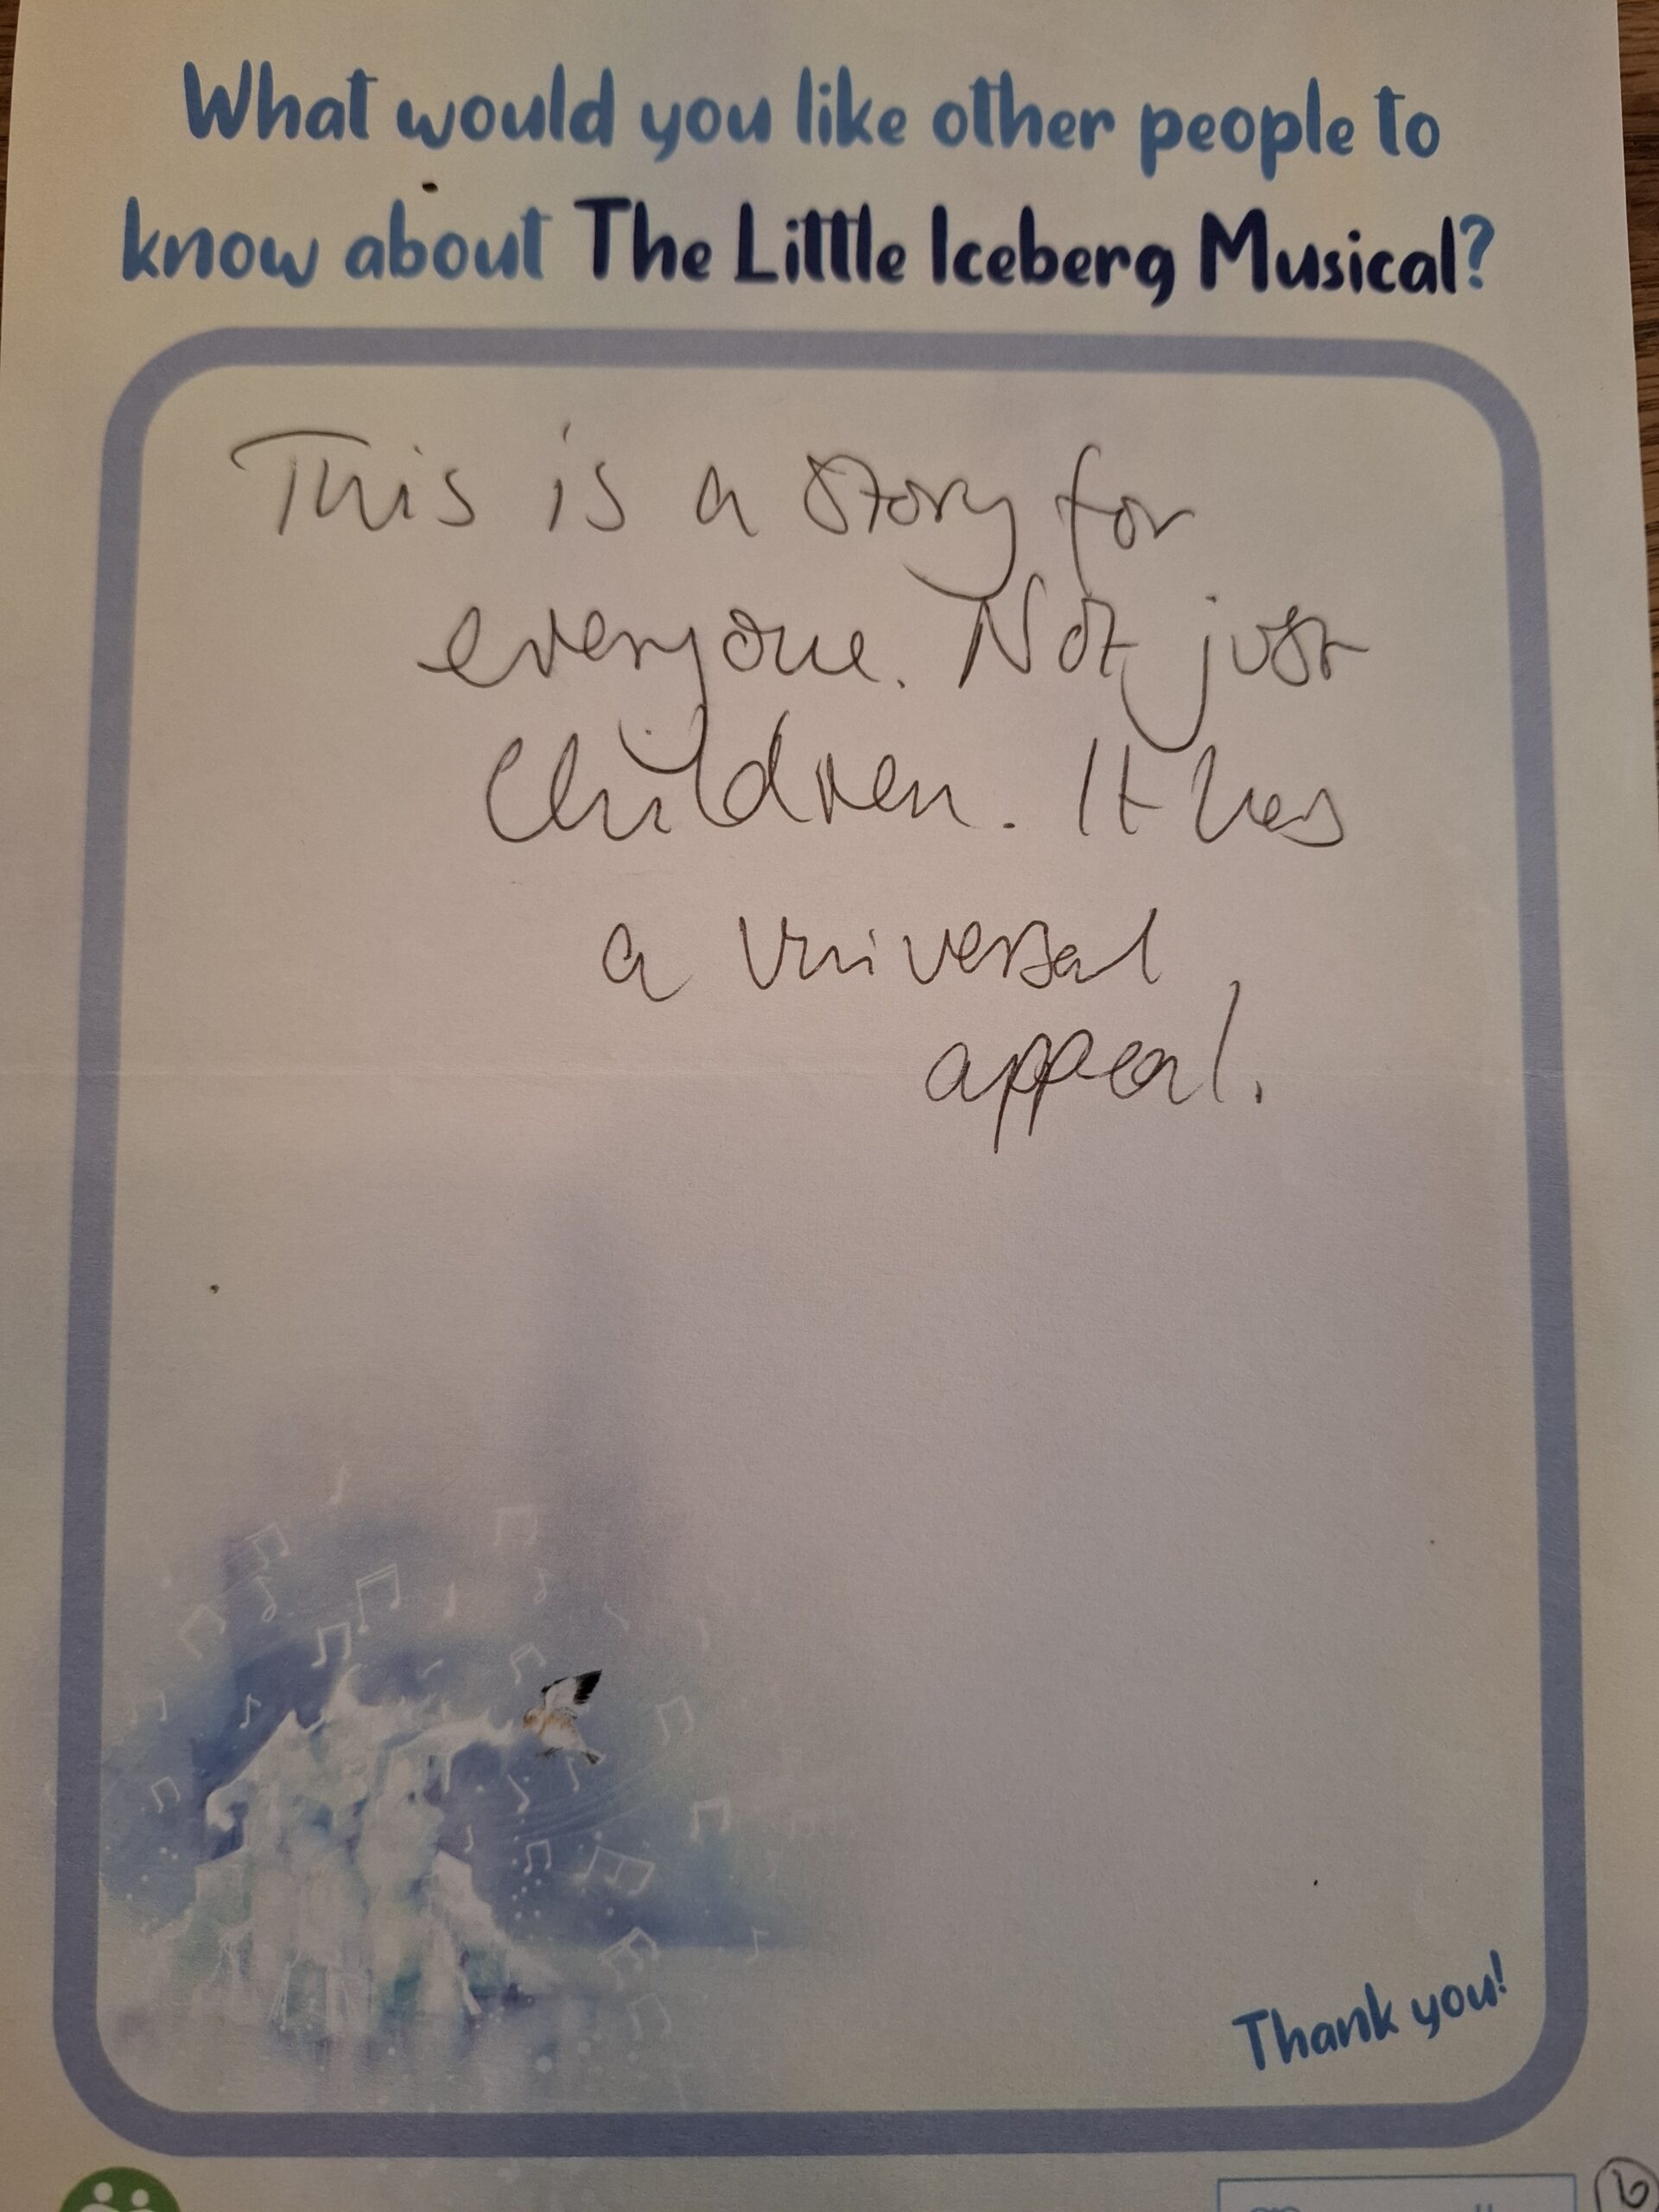 What would you like other people to
know about The Little Iceberg Musical?
This is a story for
everyone. Not just
Children. It has
a universal
appeal.
Thank you!